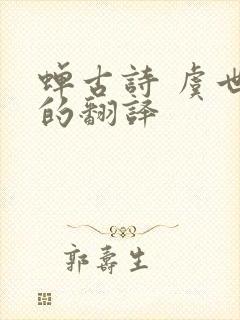 蝉古詩 虞世
的翻译
郭壽生